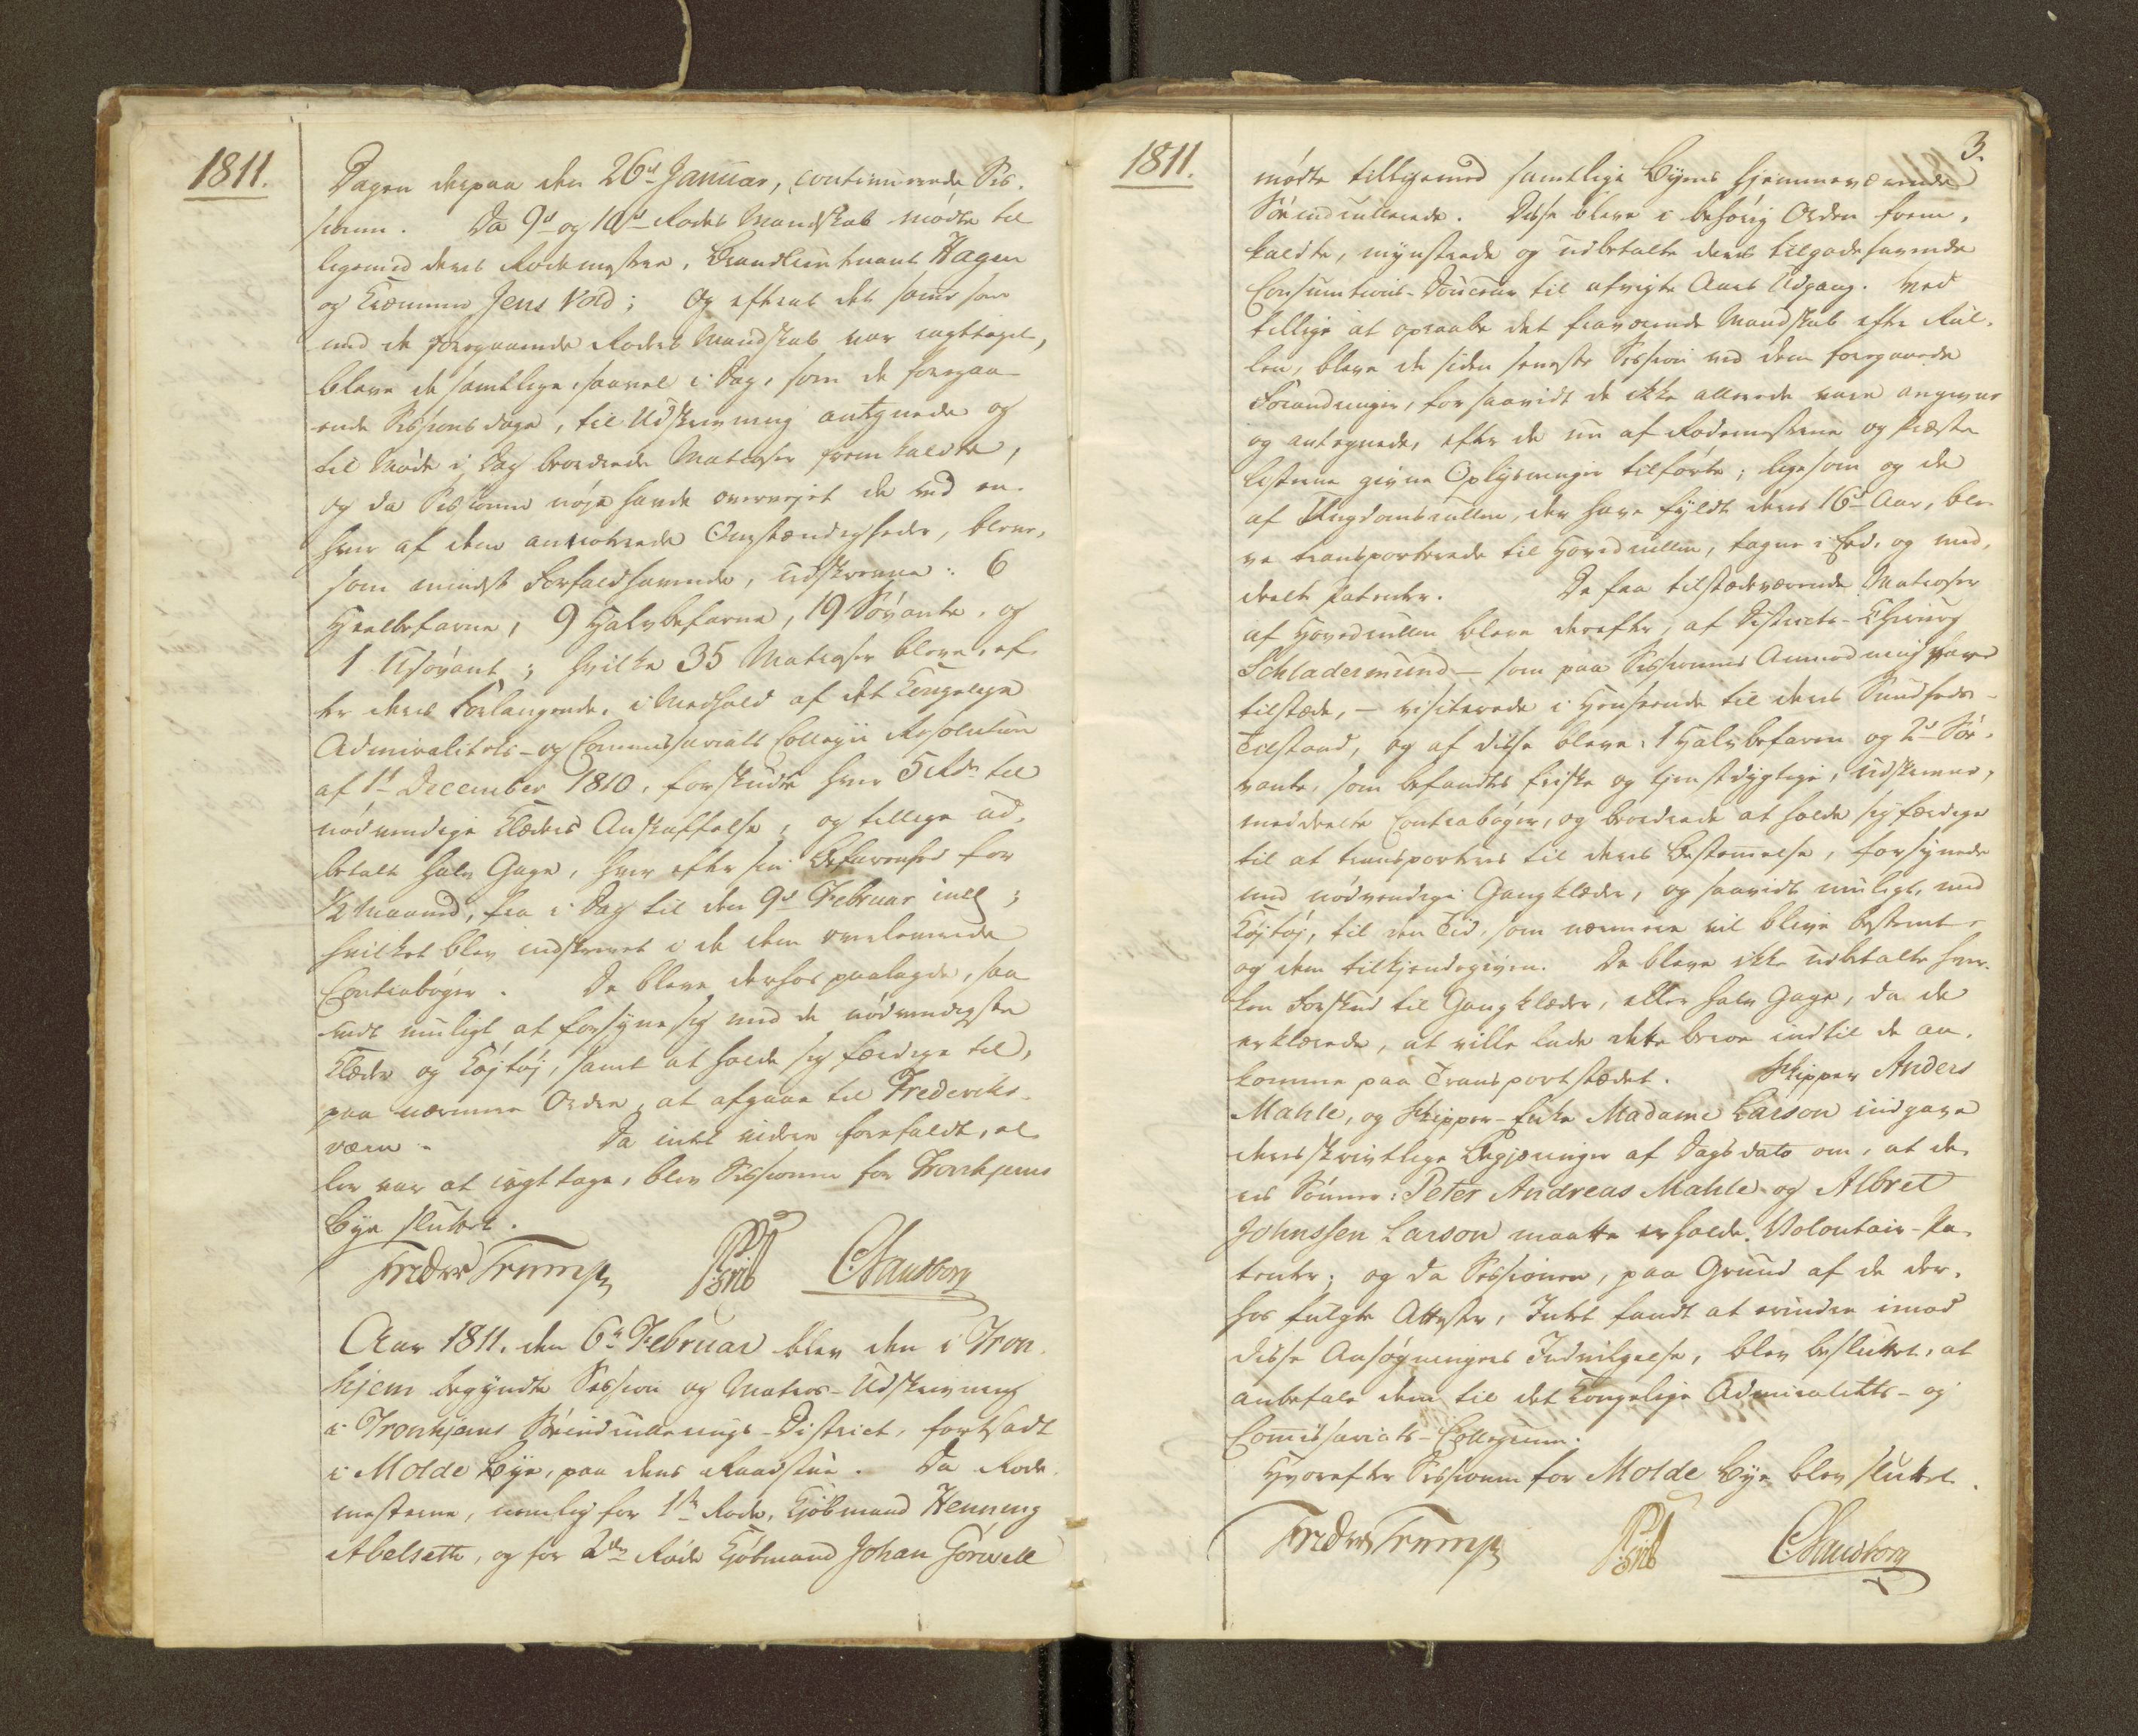 1811.
Dagen derpaa den 26d Januar, continuerede Ses-
sionen. Da 9d og 10d Rodes Mandskab mødte til
ligemed deres Rodemestre, Brandlieutnant Hagen
og Kræmmer Jens Vold; Og efterat det samme som
med de foregaaende Roders Mandskab var iagttaget,
bleve de samtlige, saavel i Dag, som de foregaa-
ende Sessions dage, til Udskrivning antegnede og
til Møde i Dag beordrede Matroser fremkaldte,
og da Sessionen nøje havde overvejet de ved en-
hver af dem antegnede Omstændigheder, bleve,
som mindst Forfaldhavende, udskrevne: 6
Heelbefarne, 9 Halvbefarne, 19 Søvante, og
1 Usøvant; hvilke 35 Matroser bleve, ef-
ter deres Forlangende, i Medhold af det Kongelige
Admiralitets- og Commissariats Collegii Resolution
af 1t December 1810, forskudte hver 5 Rdr til
nødvendige Klæders Anskaffelse, og tillige ud-
betalt halv Gage, hver efter sin Befarenhed for
1/2 Maaned, fra i Dag til den 9d Februar incl;
hvilket blev indskrevet i de dem overleverede
Contrabøger. De bleve derhos paalagde, saa-
vidt muligt at forsyne sig med de nødvendigste
Klæder og Køjtøj, samt at holde sig færdige til,
paa nærmere Ordre, at afgaae til Frederiks-
værn. Da intet videre forefaldt, el-
ler var at iagttage, blev Sessionen for Tronhjems
Bye sluttet.
Fredrik Trampe C. Sandborg
Aar 1811, den 6te Februar blev den i Tron-
hjem begyndte Session og Matros-Udskrivning
i Tronhjems Søeindrullerings-District, fortsadt
i Molde Bye, paa dens Raadstue. Da Rode-
mesterne, nemlig for 1ste Rode, Kjøbmand Henning
Abelseth, og for 2den Rode Kjøbmand Johan Gørvell
1811.
3.
mødte tilligemed samtlige Byens hjemmeværende
Søeindrullerede. Disse bleve i behørig Orden frem-
kaldte, mynstrede og udbetalte deres tilgodehavende
Consumtions-Douceur til afvigte Aars Udgang. Ved
tillige at opraabe det fraværende Mandskab efter Rul-
len, bleve de siden seneste Session ved dem foregaaede
Forandringer, forsaavidt de ikke allerede vare angivne
og antegnede, efter de nu af Rodemesterne og Præste
Listerne givne Oplysninger tilførte; ligesom og de
af Ungdomsrullen, der have fyldt deres 16d Aar, ble-
ve transporterede til Hovedrullen, tagne i Eed, og med-
deelte Patenter. De faa tilstædeværende Matroser
af Hovedrullen bleve derefter, af Districts-Chirurg
Schladermund — som paa Sessionens Anmodning var
tilstæde, — visiterede i Henseende til deres Sundheds-
Tilstand, og af disse bleve: 1 Halvbefaren og 2d Sø-
vante, som befandtes friske og tjenstdygtige, udskrevne,
meddeelte Contrabøger, og beordrede at holde sig færdige
til at transporteres til deres Bestemmelse, forsynede
med nødvendige Gangklæder, og saavidt muligt, med
Køjtøj, til den Tid, som nærmere vil blive bestemt
og dem tilkjendegiven. De bleve ikke udbetalte hver-
ken Forskud til Gangklæder, eller halv Gage, da de
erklærede, at ville lade dette beroe indtil de an-
komme paa Transportstædet. Skipper Anders
Mahle, og Skipper-Enke Madame Larson indgave
deres skrivtlige Begjæringer af Dags dato om, at de-
res Sønner: Peter Andreas Mahle og Albret
Johnssen Larson maatte erholde Volontair-Pa-
tenter; og da Sessionen, paa Grund af de der-
hos fulgte Attester, Intet fandt at erindre imod
disse Ansøgningers Indvilgelse, blev besluttet, at
anbefale dem til det Kongelige Admiralitets- og
Commissariats-Collegium.
Hvorefter Sessionen for Molde Bye blev sluttet.
Fredrik Trampe C. Sandborg